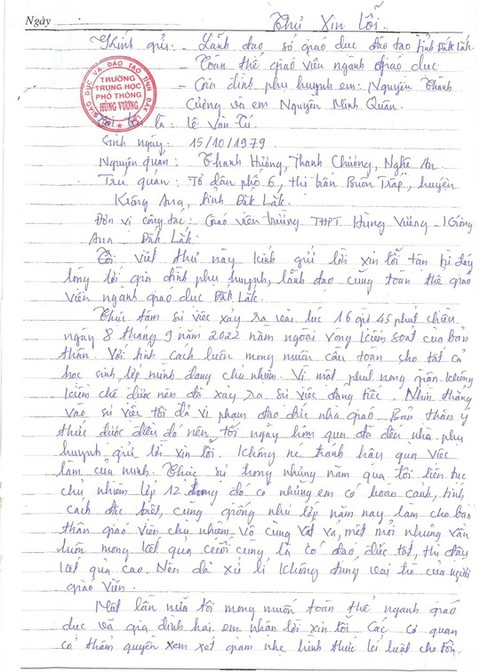 Ngày
Thư Xin Lỗi.
Kính gửi: - Lãnh đạo sở giáo dục đào tạo tỉnh Đắk Lắk.
- Toàn thể giáo viên ngành giáo dục
- Gia đình phụ huynh em: Nguyễn Thanh
Cường và em Nguyễn Minh Quân.
SỞ GIÁO DỤC VÀ ĐÀO TẠO TỈNH ĐẮK
TRƯỜNG
TRUNG HỌC
PHỔ THÔNG
HÙNG VƯƠNG
Tôi tên là: Lê Văn Tú
Sinh ngày: 15/10/1979
Nguyên quán: Thanh Hương, Thanh Chương, Nghệ An
Trú quán: Tổ dân phố 6, thị trấn Buôn Trấp, huyện
Krông Ana, tỉnh Đắk Lắk.
Đơn vị công tác: Giáo viên trường THPT Hùng Vương - Krông
Ana - Đắk Lắk.
Tôi viết thư này kính gửi lời xin lỗi tận từ đáy
lòng tới gia đình phụ huynh, lãnh đạo cùng toàn thể giáo
viên ngành giáo dục Đắk Lắk.
Thực tâm sự việc xảy ra vào lúc 16 giờ 45 phút chiều
ngày 8 tháng 9 năm 2022 nằm ngoài vòng kiểm soát của bản
thân. Với tính cách luôn mong muốn cầu toàn cho tất cả
học sinh, lớp mình đang chủ nhiệm. Vì một phút nóng giận không
kiềm chế được nên đã xảy ra sự việc đáng tiếc. Nhìn thẳng
vào sự việc tôi đã vi phạm đạo đức nhà giáo. Bản thân ý
thức được điều đó nên tối ngày hôm qua đã đến nhà phụ
huynh gửi lời xin lỗi. Không né tránh hậu quả việc
làm của mình. Thực sự trong những năm qua tôi liên tục
chủ nhiệm lớp 12 trong đó có những em có hoàn cảnh, tính
cách đặc biệt, cũng giống như lớp năm nay làm cho bản
thân giáo viên chủ nhiệm vô cùng vất vả, mệt mỏi nhưng vẫn
luôn mong kết quả cuối cùng là có đạo đức tốt, thi đậu
kết quả cao. Nên đã xử lí không đúng vai trò của người
giáo viên.
Một lần nữa tôi mong muốn toàn thể ngành giáo
dục và gia đình hai em nhận lời xin lỗi. Các cơ quan
có thẩm quyền xem xét giảm nhẹ hình thức kỉ luật cho tôi.